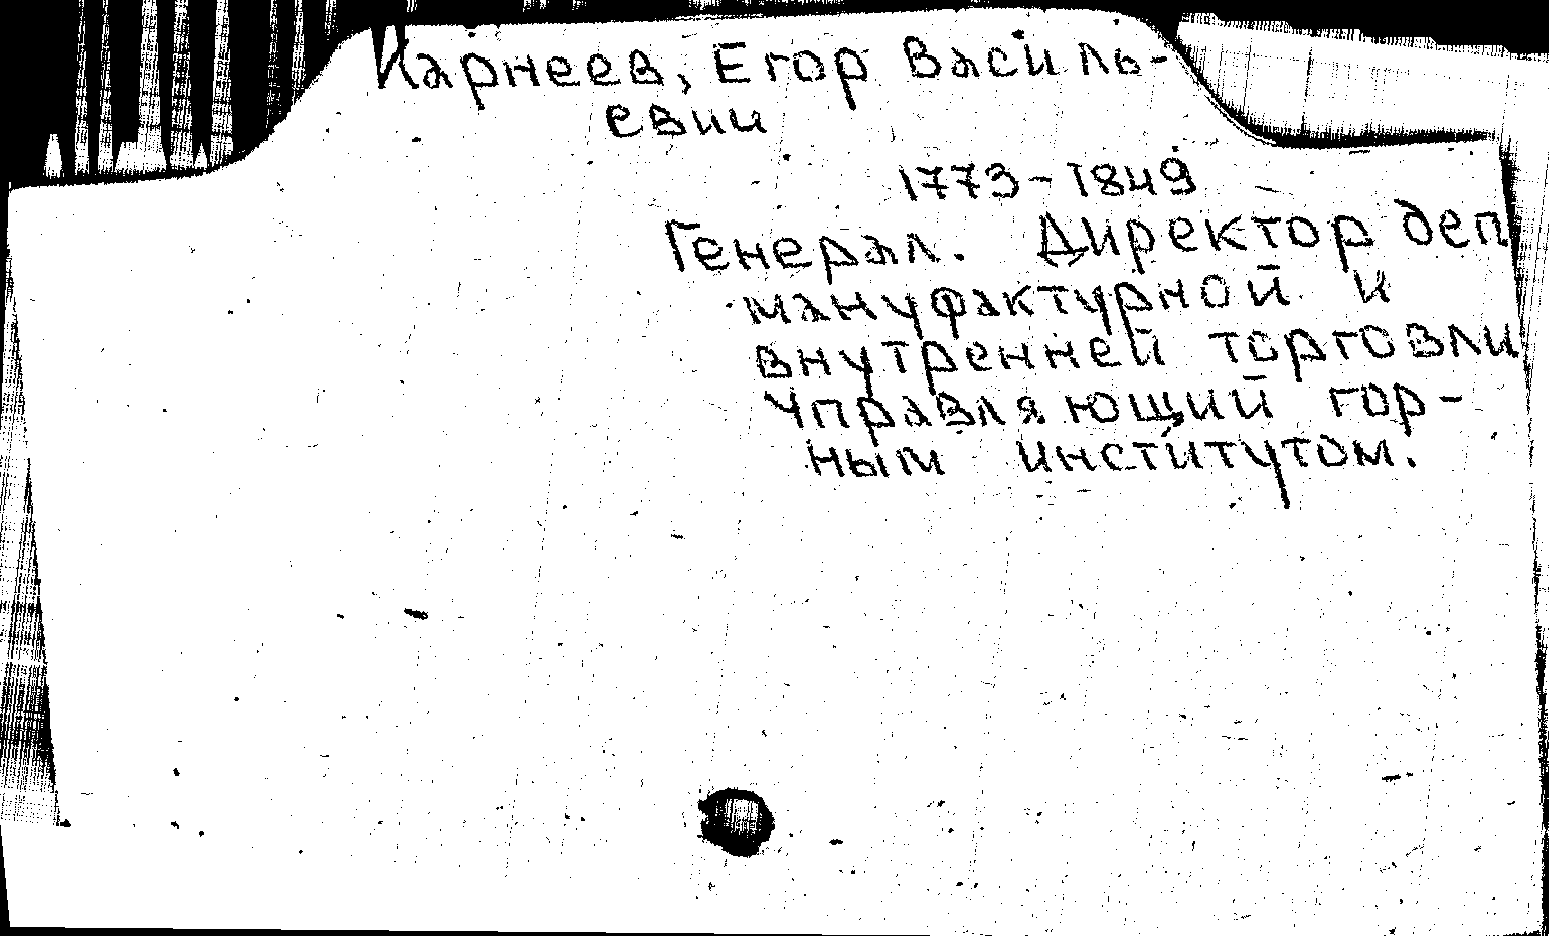 Карнеев, Егор Василь-
евич
1773-1849
Генерал. Директор деп
мануфактурной и
внутренней торговли
Управляющий гор-
ным институтом.